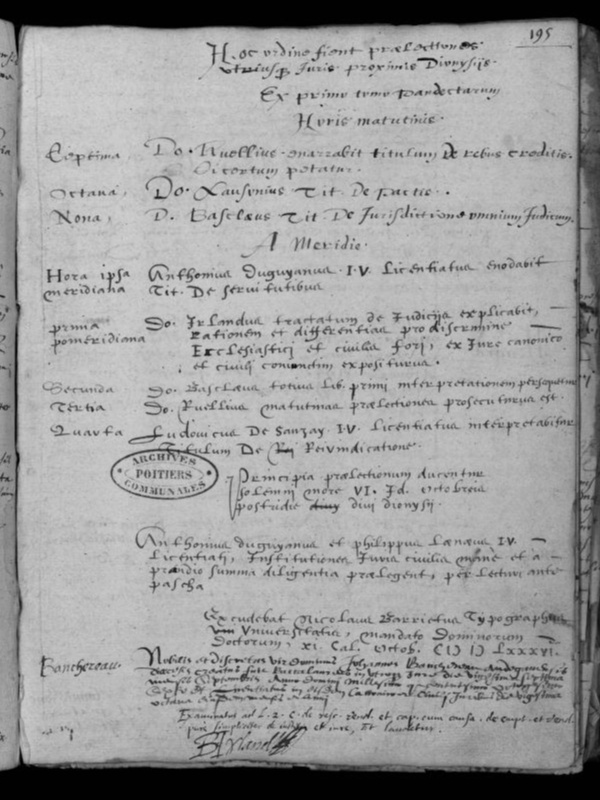 195
Hoc ordine fient prælectiones
utriusq Juris proximis Dionysiis
Ex primo tomo Pandectarum
Horis matutinis
Septima Do. Ruellius enarrabit titulum De rebus creditis.
Si certum petatur.
Octava, Do. Lausonius Tit. De Pactis.
Nona, D. Basclæus Tit. De Jurisdictione omnium Judicum.
A Meridie.
Hora ipsa meridiana Anthonius duguyanus I. V. Licentiatus enodabit
Tit. De servitutibus
prima pomeridiana Do. Irlandus tractatum de Judiciis explicabit,
Rationem et differentias pro discrimine
Ecclesiastici et civilis fori, ex Jure canonico
et civili coniunctim expositurus.
Secunda Do. Basclæus totius Lib. primi interpretationem persequetur
Tertia Do. Ruellius matutinas prælectiones prosecuturus est.
Quarta Ludovicus De Sanzay. I. V. Licentiatus interpretabitur
Titulum De Rei Reivindicatione.
ARCHIVES
POITIERS
COMMUNALES
Principia prælectionum ducentur
solemni more VI. Id. Octobris
postridie divi dionysii.
Anthonius duguyanus et philippus Lænæus I. V.
Licentiati, Institutiones Juris civilis mane et a
prandio summa diligentia prælegent, per lectur ante
pascha
Excudebat Nicolaus Barrietus Typographus
Universitatis, mandato Dominorum
Doctorum, xi. Cal. Octob. CIↃ IↃ LXXXVI.
Banchereau. Nobilis et discretus vir Dominus
Examinatus ad L. 2. C. de resc. vend. et cap. cum causa. de empt. et vend.
et iure, et laudetur.